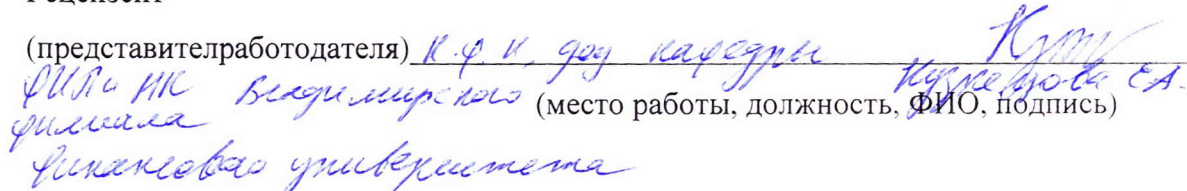 (представителработодателя) к.ф.н., доц кафедры
ФИПи НК Владимирского Кузнецова Е.А.
филиала (место работы, должность, ФИО, подпись)
Финансового университета